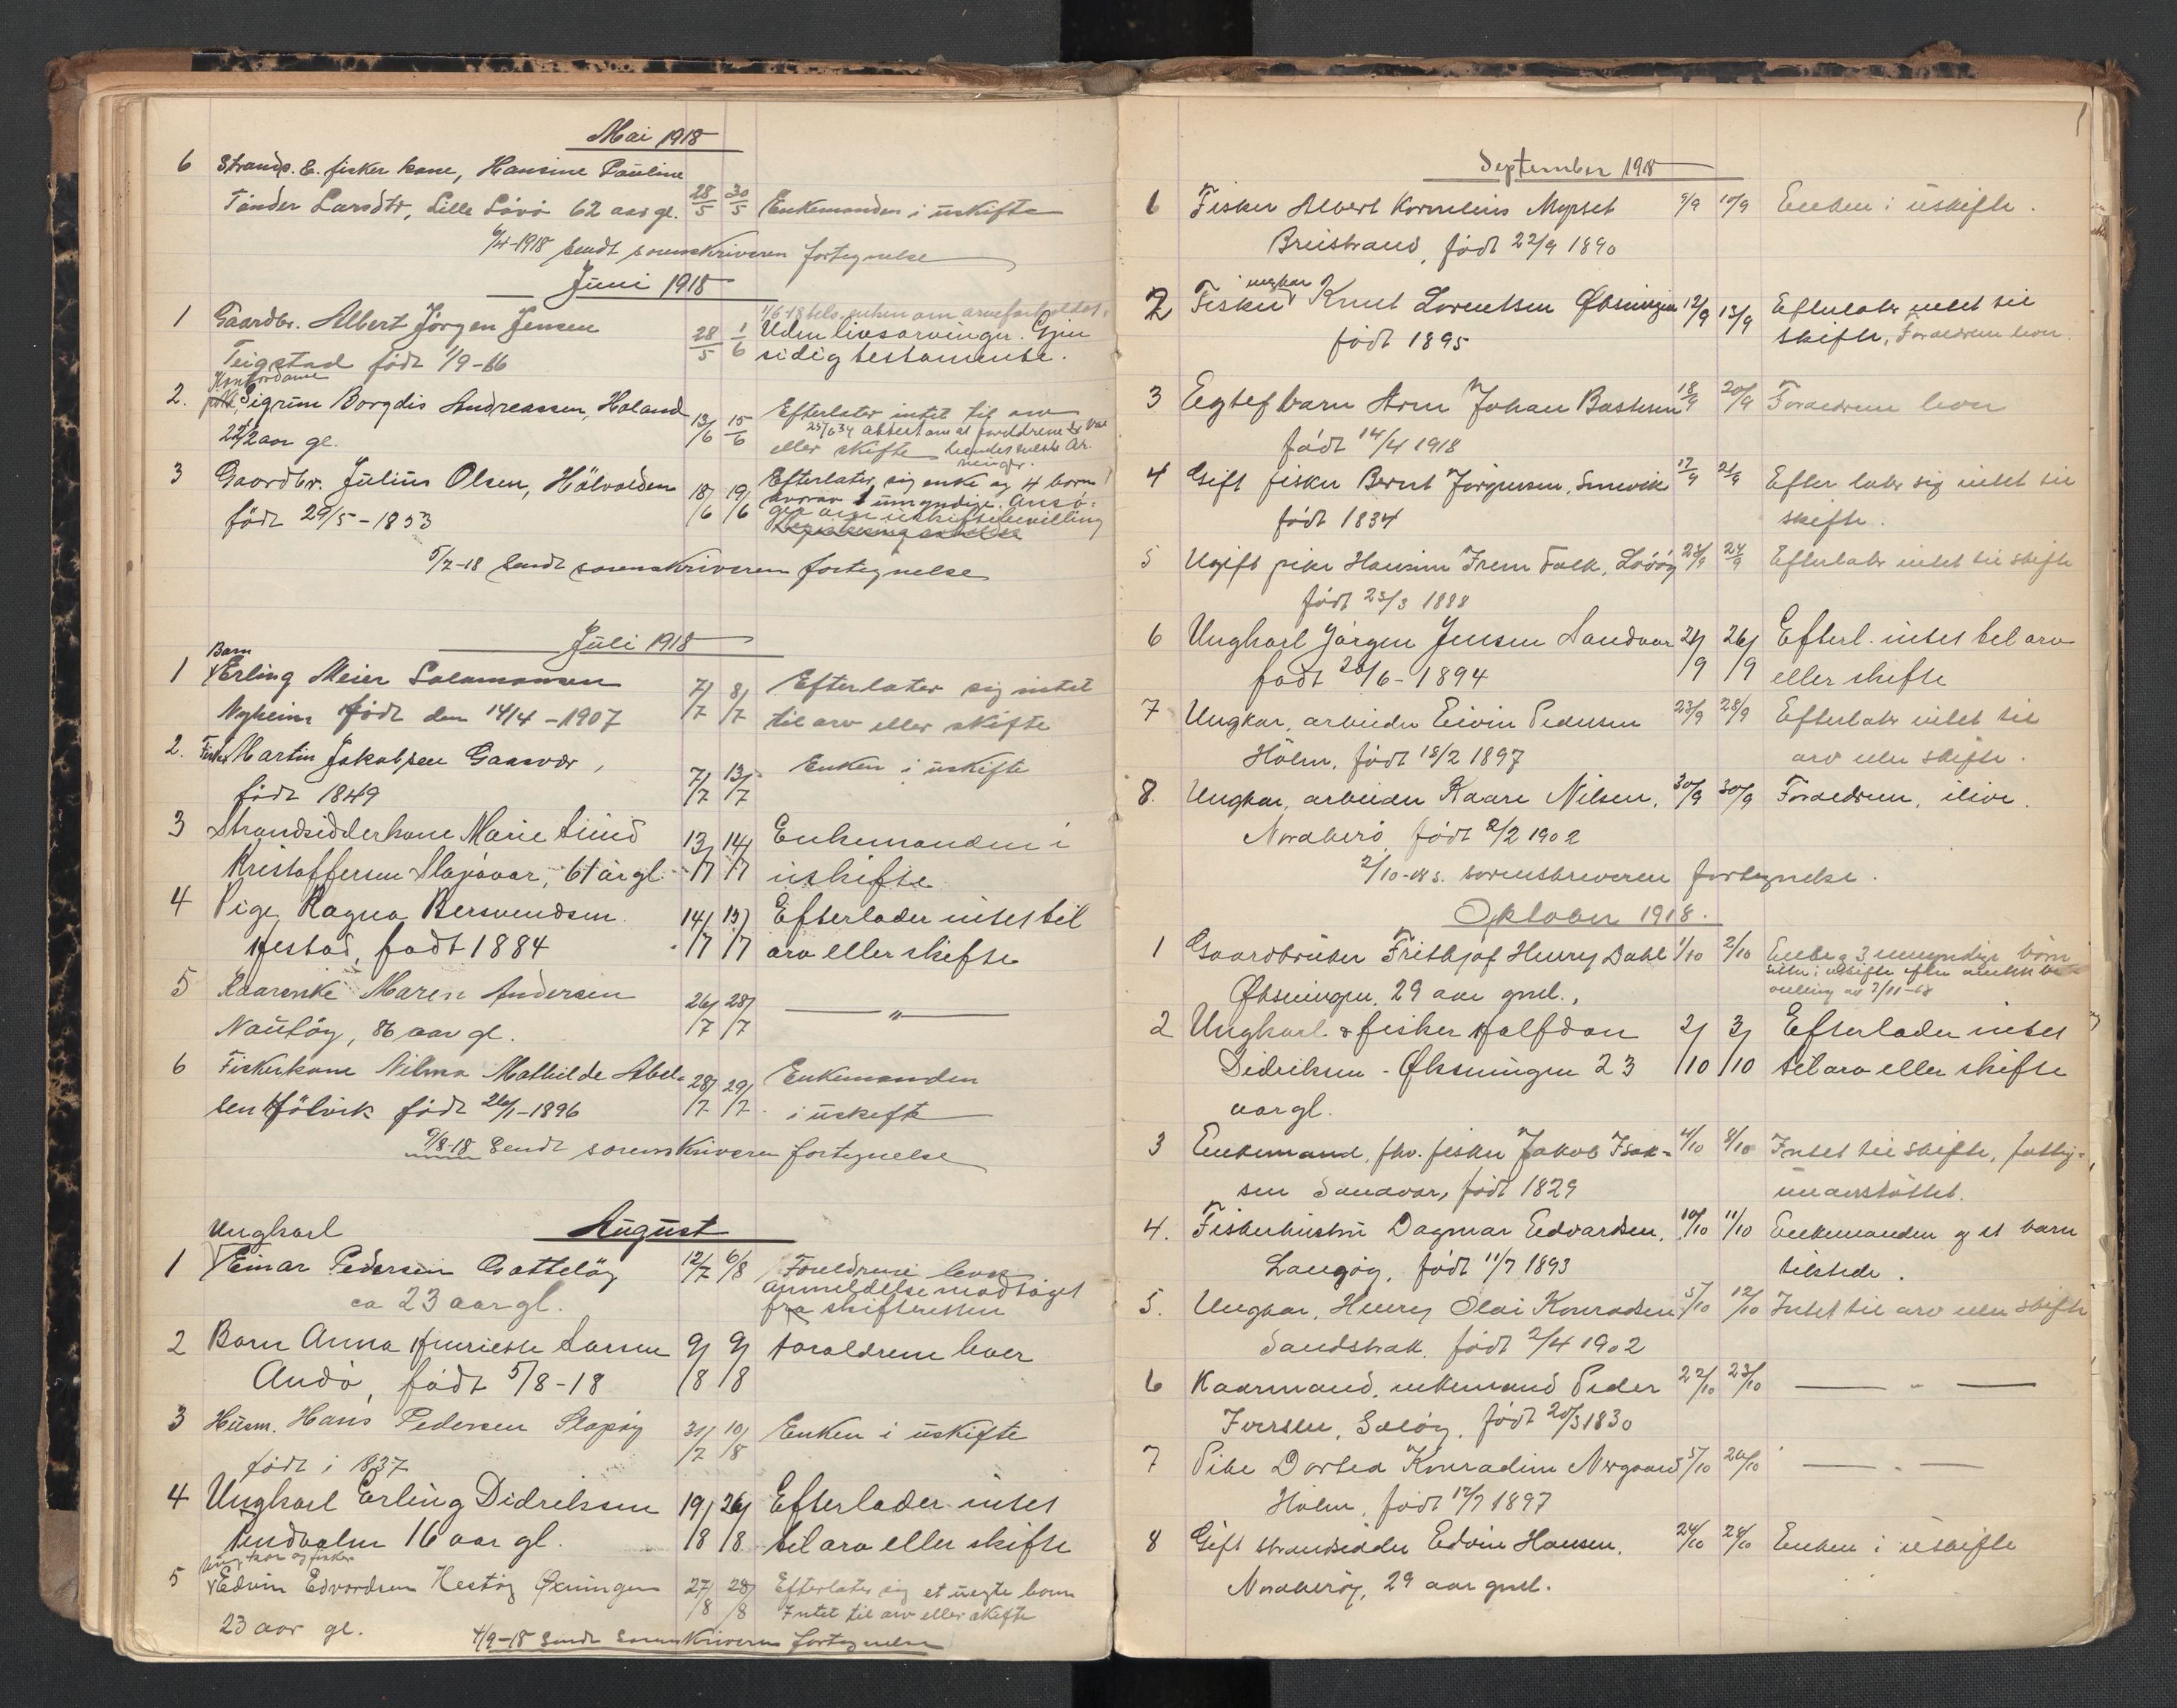 Mai 1918
6 Strands. & fisker kone, Hansine Pauline
Tönder Larsdtr, Lille Lövö 62 aar gl. 28/5 30/5 Enkemanden i uskifte
6/4-1918 sendt sorenskriveren fortegnelse
Juni 1918
1 Gaardbr. Albert Jörgen Jensen 28/5 1/6 Uden livsarvinger. Gjen
Teigstad födt 1/9-66 sidig testamente.
Kontordame
2. Sigrun Borgdis Andreassen, Holand 13/6 15/6 Efterlater intet til arv
22 1/2 aar gl. eller skifte
3 Gaardbr. Julius Olsen, Hölvolden 18/6 19/6 Efterlater sig enke og 4 born
födt 29/5-1853 hvorav 1 umyndige. Ansö-
ger om uskiftebevilling
5/7-18 sendt sorenskriveren fortegnelse
Juli 1918
Barn
1 Erling Meier Salamonsen 7/7 8/7 Efterlater sig intet
Nyheim födt den 14/4-1907 til arv eller skifte
2. Fisker Martin Jakobsen Gaasvær, 7/7 13/7 Enken i uskifte
födt 1849
3 Strandsidderkone Marie 13/7 14/7 Enkemanden i
Kristoffersen Slapövar, 61 år gl. uskifte
4 Pige Ragna Bersvendsen 14/7 15/7 Efterlader intet til
Hestad, födt 1884 arv eller skifte
5 Kaarenke Maren Andersen 26/7 28/7 — " —
Nautöy, 86 aar gl.
6 Fiskerkone Vilma Mathilde Abel- 28/7 29/7 Enkemanden
sen Hölvik födt 26/1-1896 i uskifte
9/8-18 sendt sorenskriveren fortegnelse
August
Ungkarl
1 Einar Pedersen 12/7 6/8 Foreldrene lever
ca 23 aar gl. anmeldelse modtaget
fra skifteretten
2 Barn Anna Henriette Larsen 9/8 9/8 Foraldrene lever
Andö, födt 5/8-18
3 Husm. Hans Pedersen Slapöy 31/7 10/8 Enken i uskifte
födt i 1837
4 Ungkarl Erling Didriksen 19/8 26/8 Efterlader intet
16 aar gl. til arv eller skifte
Ungkar og fisker
5 Edvin Edvardsen Hestöy Öxningen 27/8 28/8 Efterlater sig et uegte barn
23 aar gl. Intet til arv eller skifte
4/9-18 sendt sorenskriveren fortegnelse
September 1918
1 Fisker Albert Kornelius Mypset 9/9 10/9 Enken i uskifte.
Breistrand, födt 22/9 1890
ungkar
2 Fisker Knut Lorentsen Øksningen 12/9 13/9 Efterlater intet til
födt 1895 skifte, Foraeldrene lever.
3 Egtef barn Arne Johan Bastesen 18/9 20/9 Foraeldrene lever
födt 14/4 1918
4 Gift fisker Bernt Jörgensen, 17/9 21/9 Efterlater sig intet til
födt 1834 skifte.
5 Ugift pike Hansine Irene Falch, Lövöy 23/9 24/9 Efterlater intet til skifte
födt 23/3 1888
6 Ungkarl Jörgen Jensen Sandvær 21/9 26/9 Efterl. intet til arv
födt 28/6-1894 eller skifte
7 Ungkar, arbeider Eivin Pedersen 23/9 28/9 Efterlater intet til
Holm, födt 18/2 1897 arv eller skifte.
8. Ungkar, arbeider Kaare Nilsen, 30/9 30/9 Foraeldrene, ilive.
Nordherö födt 2/2 1902
2/10- s. sorenskriveren fortegnelse.
Oktober 1918.
1 Gaardbruker Frithjof Henry Dahl 1/10 2/10 Enke og 3 umyndige börn
sitter i uskifte efter
villing av 7/11-18
Øksningen, 29 aar gml.,
2 Ungkarl. & fisker Halfdan 2/10 3/10 Efterlader intet
Didriksen - Øksningen 23 til arv eller skifte
aar gl.
3 Enkemand, fhv. fisker Jakob Isak- 4/10 8/10 Intet til skifte, fattig-
sen Sandvær, födt 1829 understöttet.
4. Fiskerhustru Dagmar Edvardsen, 10/10 11/10 Enkemanden og et barn
Langöy, födt 11/7 1893 tilstede.
5. Ungkar, Henry Olai Konradsen 5/10 12/10 Intet til arv eller skifte
Sandstrak, födt 2/4 1902
6 Kaarmand, enkemand Peder 22/10 23/10 — " —
Iversen, Salöy, födt 20/3 1830
7 Pike Dortea Konradine Norgaard 5/10 26/10 — " —
Holm, födt 17/7 1897
8 Gift strandsidder Edvin Hansen, 24/10 28/10 Enken i uskifte
Nordheröy, 29 aar gml.